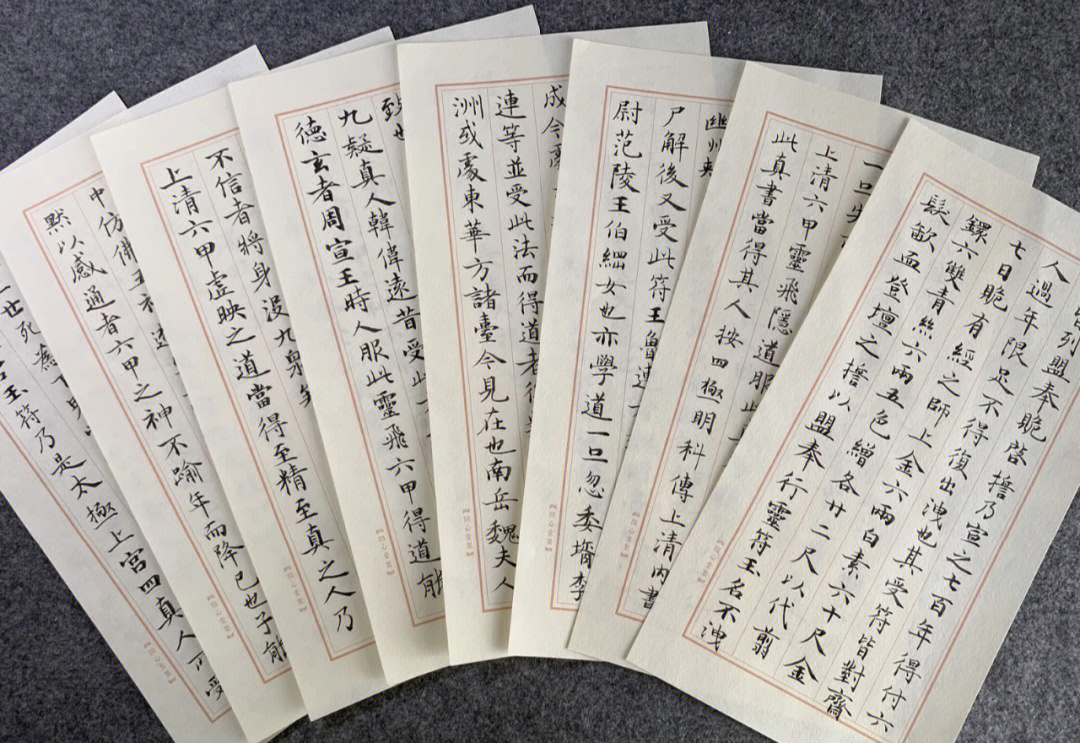 世死為下
玉符乃是太極上宮四真人所受
中仿佛五
默以感通者六甲之神不踰年而降已也子能
不信者將身没九泉矣
上清六甲虛映之道當得至精至真之人乃
致也
九疑真人韓偉遠昔受此
德玄者周宣王時人服此靈飛六甲得道能
成今處
連等並受此法而得道者
洲或處東華方諸臺今見在也南岳魏夫人
幽州刺
尸解後又受此符王魯連
尉范陵王伯綱女也亦學道一旦忽委壻李
一旦失
上清六甲靈飛隱道服此
此真書當得其人按四極明科傳上清内書
者列盟奉脆啓擔乃宣之七百年得付六
人過年限足不得復出洩也其受符皆對齋
七日脆有經之師上金六兩白素六十尺金
鐶六雙青絲六兩五色繒各廿二尺以代翦
髮歃血登壇之擔以盟奉行靈符玉名不洩